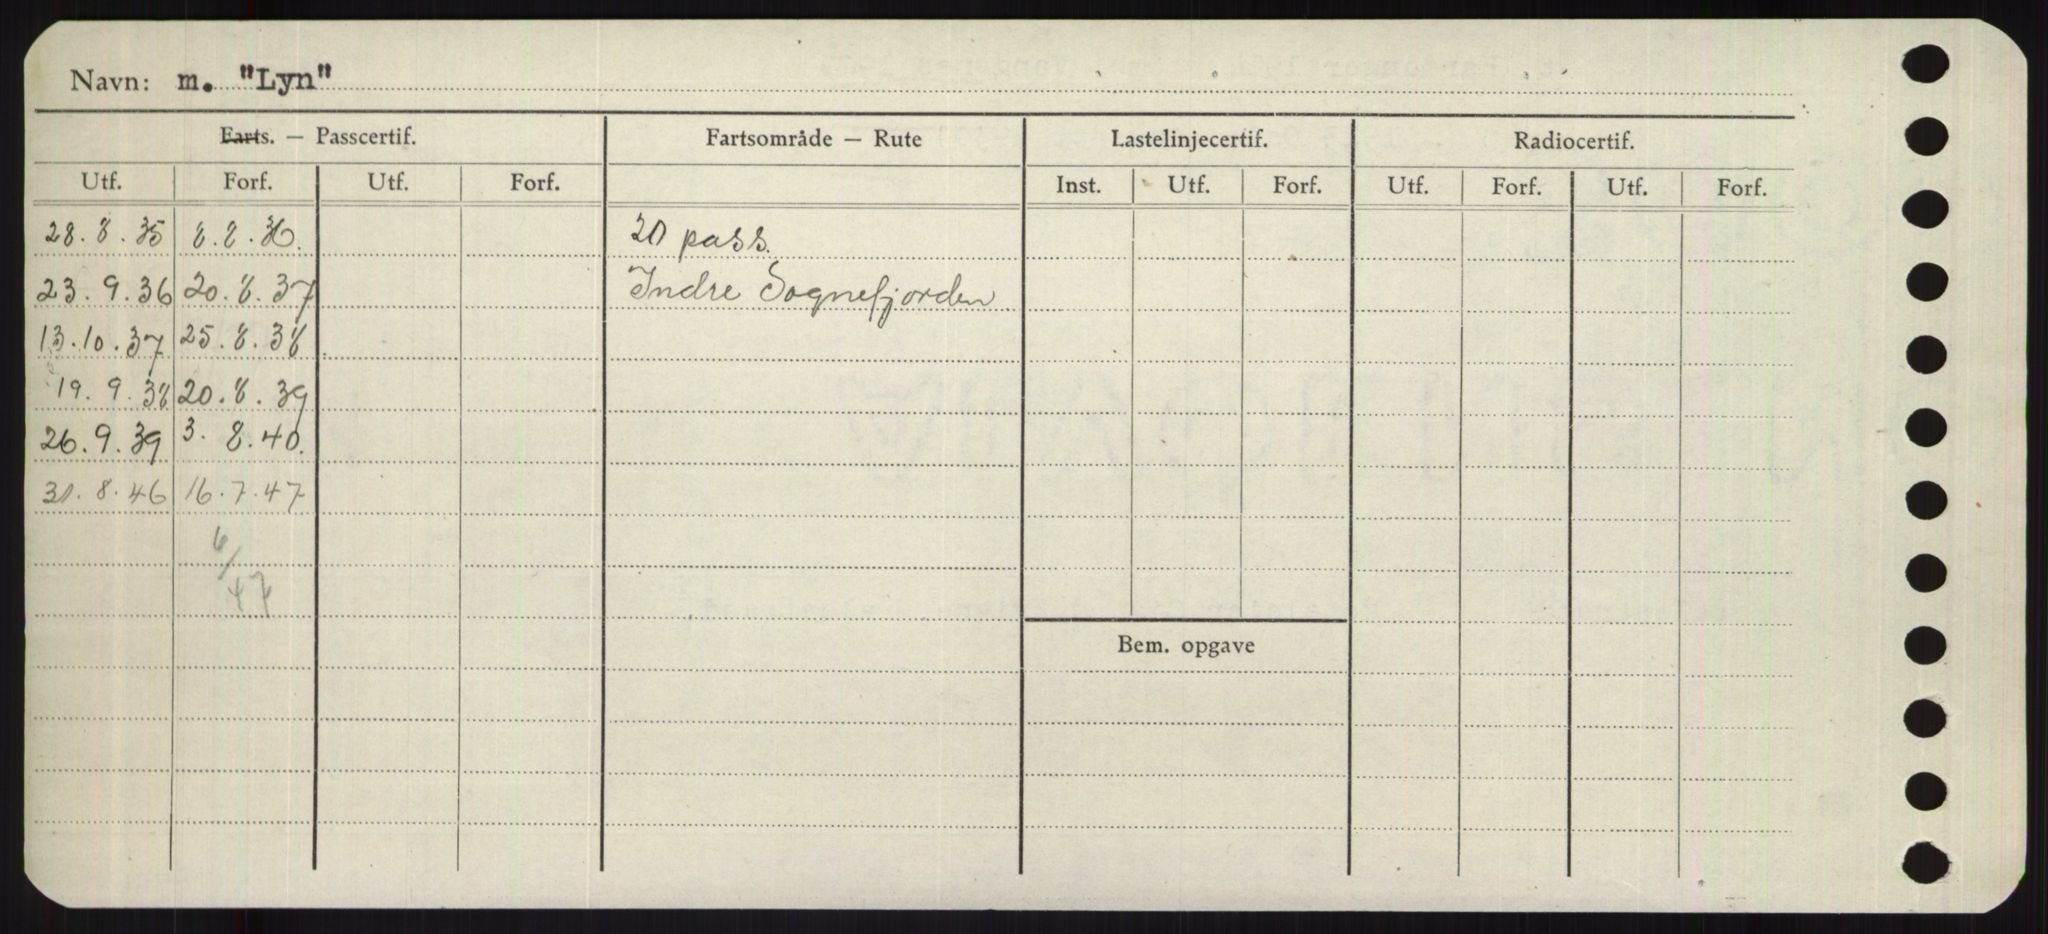 Navn: m. "Lyn"
Farts. — Passcertif. Fartsområde — Rute Lastelinjecertif. Radiocertif.
Utf. Forf. Utf. Forf. Inst. Utf. Forf. Utf. Forf. Utf. Forf.
28.8.35 8.8.36. 20 pass.
23.9.36 20.8.37 Indre Sognefjorden
13.10.37 25.8.38
19.9.38 20.8.39
26.9.39 3.8.40.
31.8.46 16.7.47
6/47
Bem. opgave